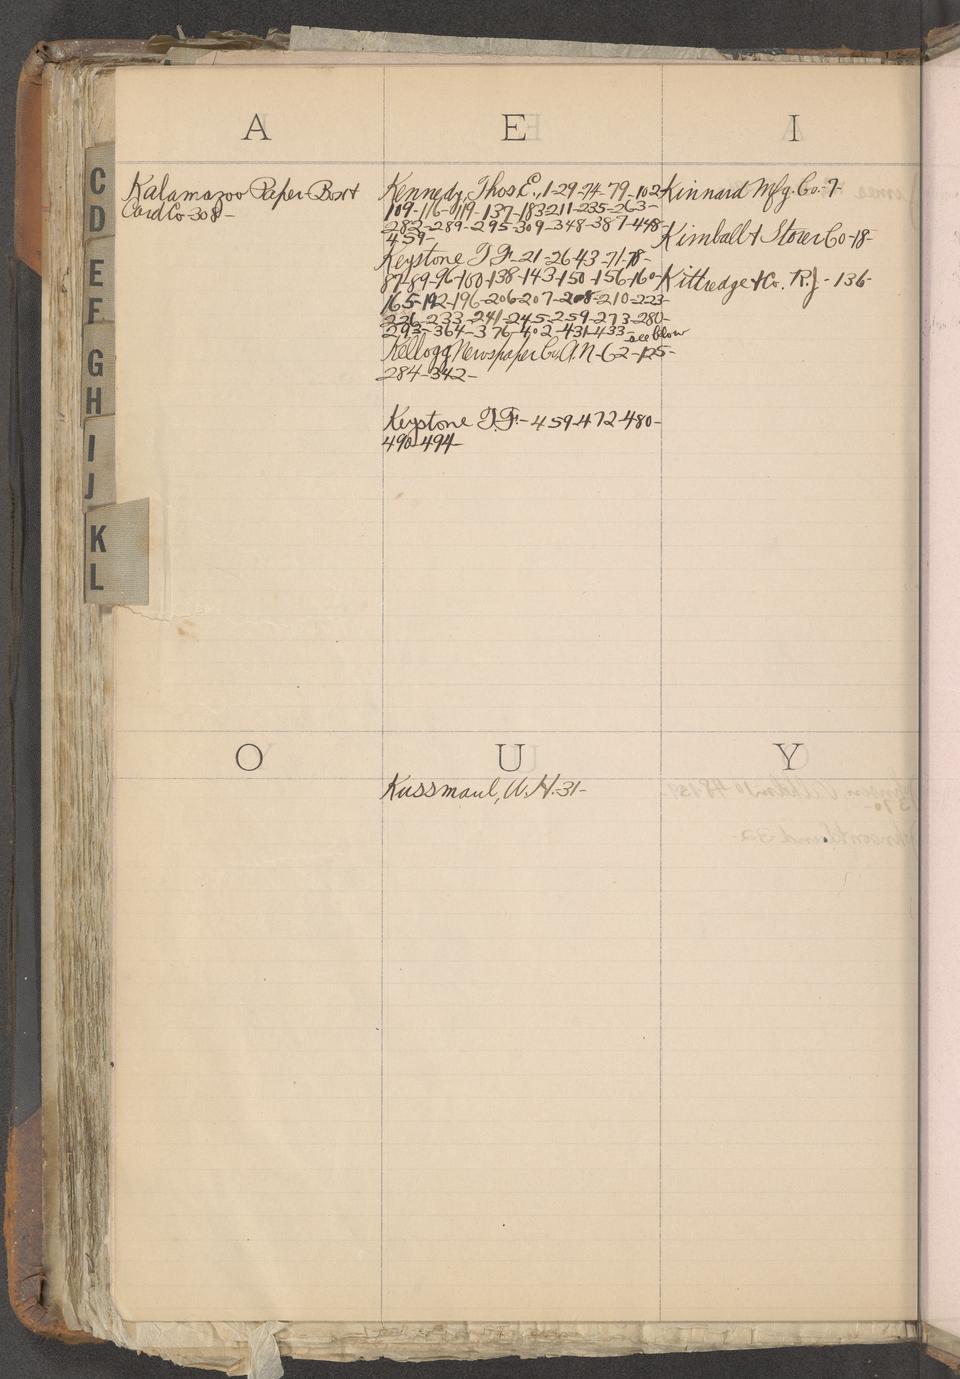 A
Kalamazoo Paper Box &
Card Co-308-
E
Kennedy, Thos. E., 1-29-74-79-102-
109-116-119-137-183-211-235-263-
282-289-295-309-348-387-448-
459-
Keystone T. F.-21-26-43-71-78-
87-89-96-100-138-143-150-156-160-
165-192-196-206-207-208-210-223-
226-233-241-245-259-273-280-
293-364-376-402-431-433-see blow
Kellogg Newspaper Co. A. N-62-125-
284-342-
Keystone T. F.-459-472-480-
490-494-
I
Kinnard Mfg. Co.-7-
Kimball & Storer Co-18-
Kittredge & Co. R. J.-136-
C
D
E
F
G
H
I
J
K
L
O
U
Kussmaul, W. H.-31-
Y